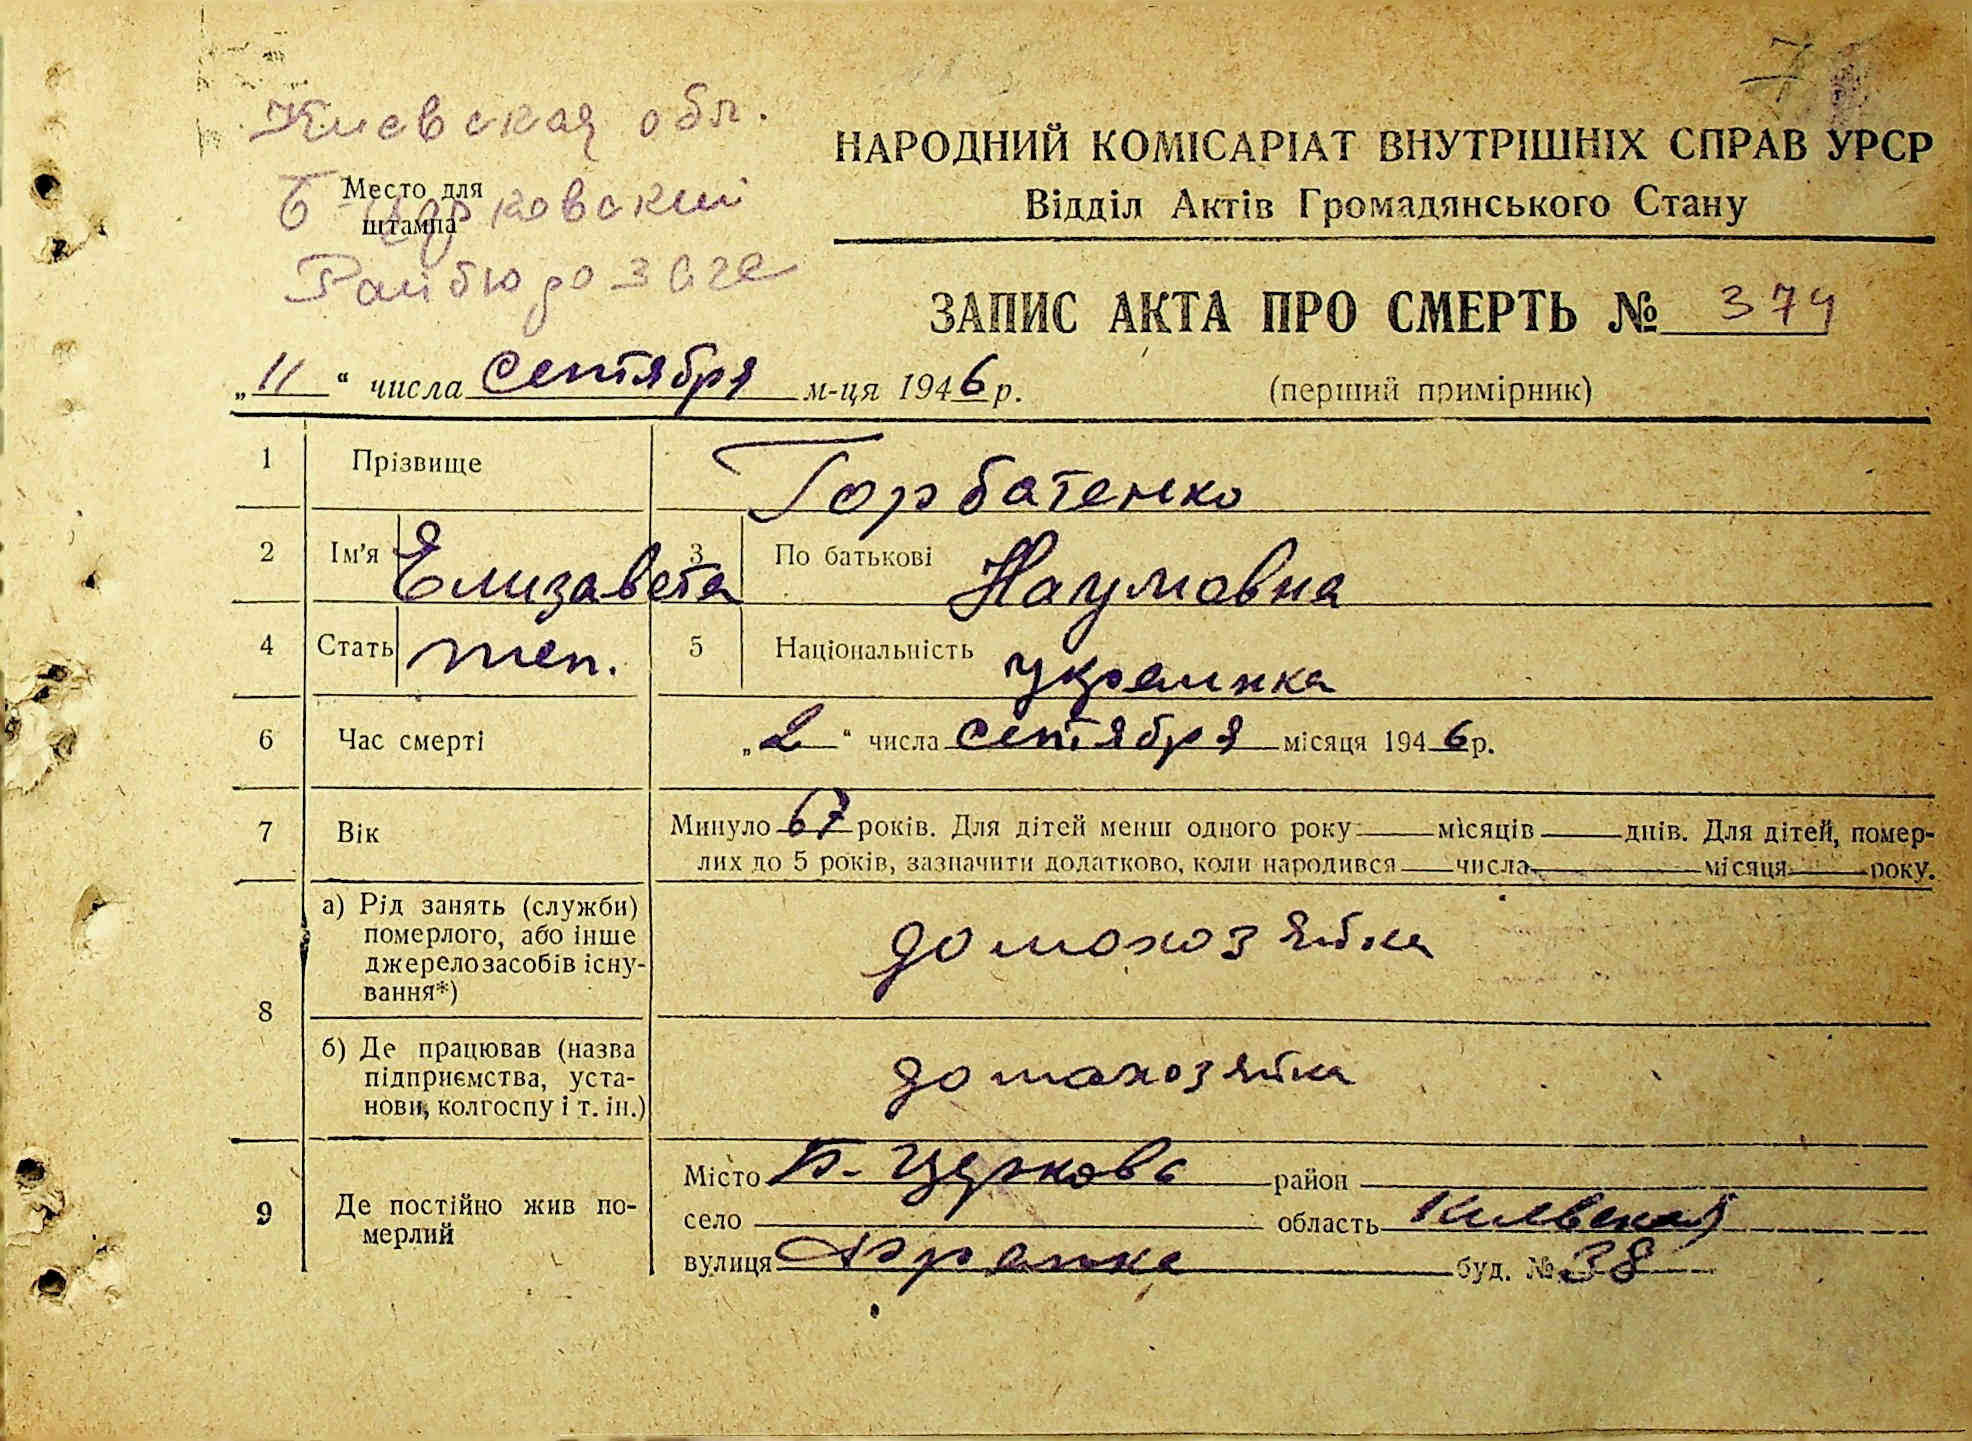 7
Киевская обл.
Место для
Б-Церковский
штампа
Райбюро загс
НАРОДНИЙ КОМІСАРІАТ ВНУТРІШНІХ СПРАВ УРСР
Відділ Актів Громадянського Стану
ЗАПИС АКТА ПРО СМЕРТЬ № 374
„11“ числа сентября м-ця 1946 р.
(перший примірник)
1 Прізвище Горбатенко
2 Ім’я Елизавета 3 По батькові Наумовна
4 Стать жен. 5 Національність украинка
6 Час смерті „2“ числа сентября місяця 1946 р.
7 Вік Минуло 67 років. Для дітей менш одного року — місяців — днів. Для дітей, помер-
лих до 5 років, зазначити додатково, коли народився — числа — місяця — року.
8 а) Рід занять (служби)
померлого, або інше
джерело засобів існу-
вання*)
домохозяйка
б) Де працював (назва
підприємства, уста-
нови, колгоспу і т. ін.)
домохозяйка
9 Де постійно жив по-
мерлий
Місто Б-Церковь район
село область Киевская
вулиця буд. № 38